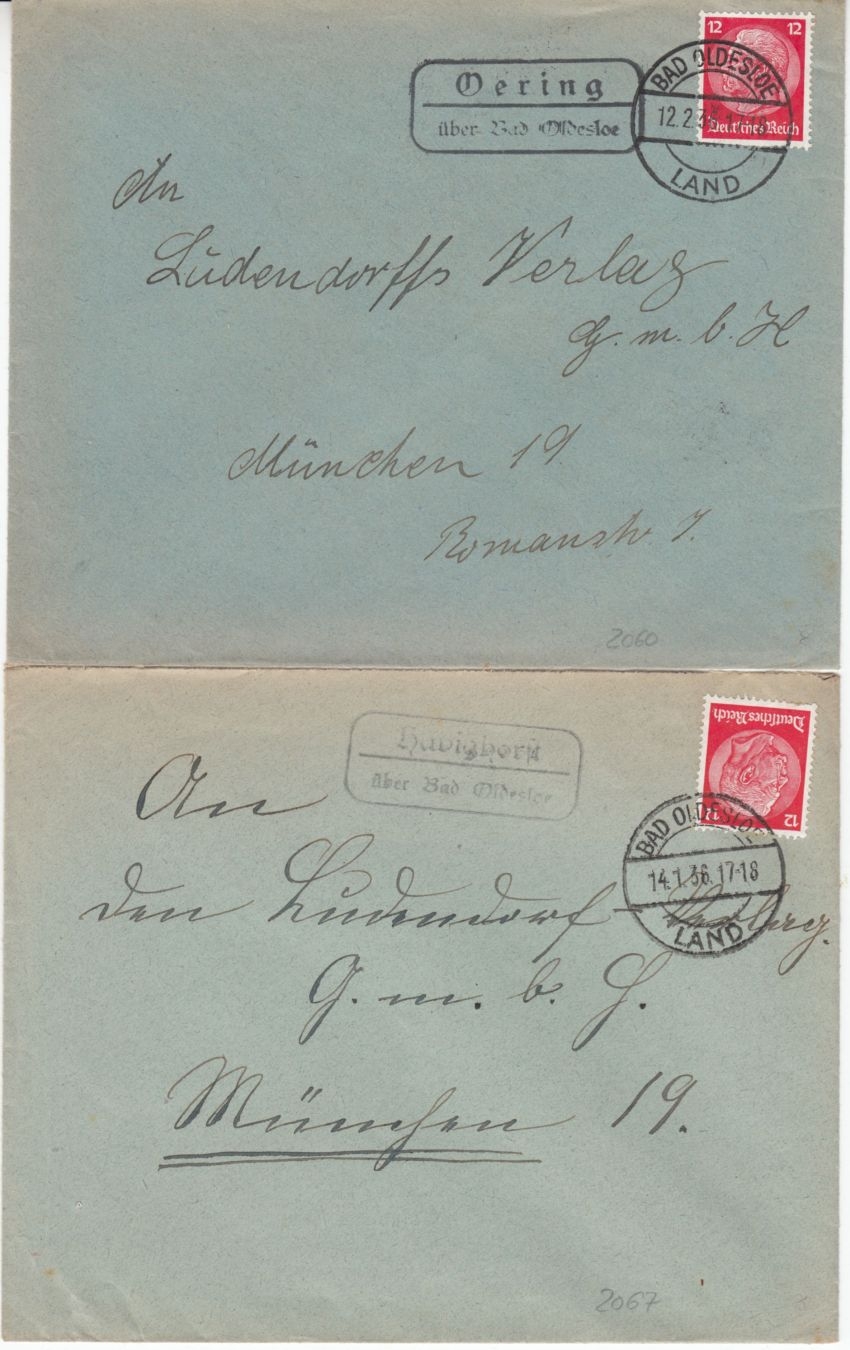 Oering
über Bad Oldesloe
12 12
Deutsches Reich
BAD OLDESLOE
12.2.36.17-18
LAND
An
Ludendorffs Verlag
G. m. b. H
München 19.
Romanstr. 7.
2060
Havighorst
über Bad Oldesloe
Deutsches Reich
12 12
BAD OLDESLOE
14.1.36.17-18
LAND
An
den Ludendorf-Verlag.
G. m. b. H.
München 19.
2067